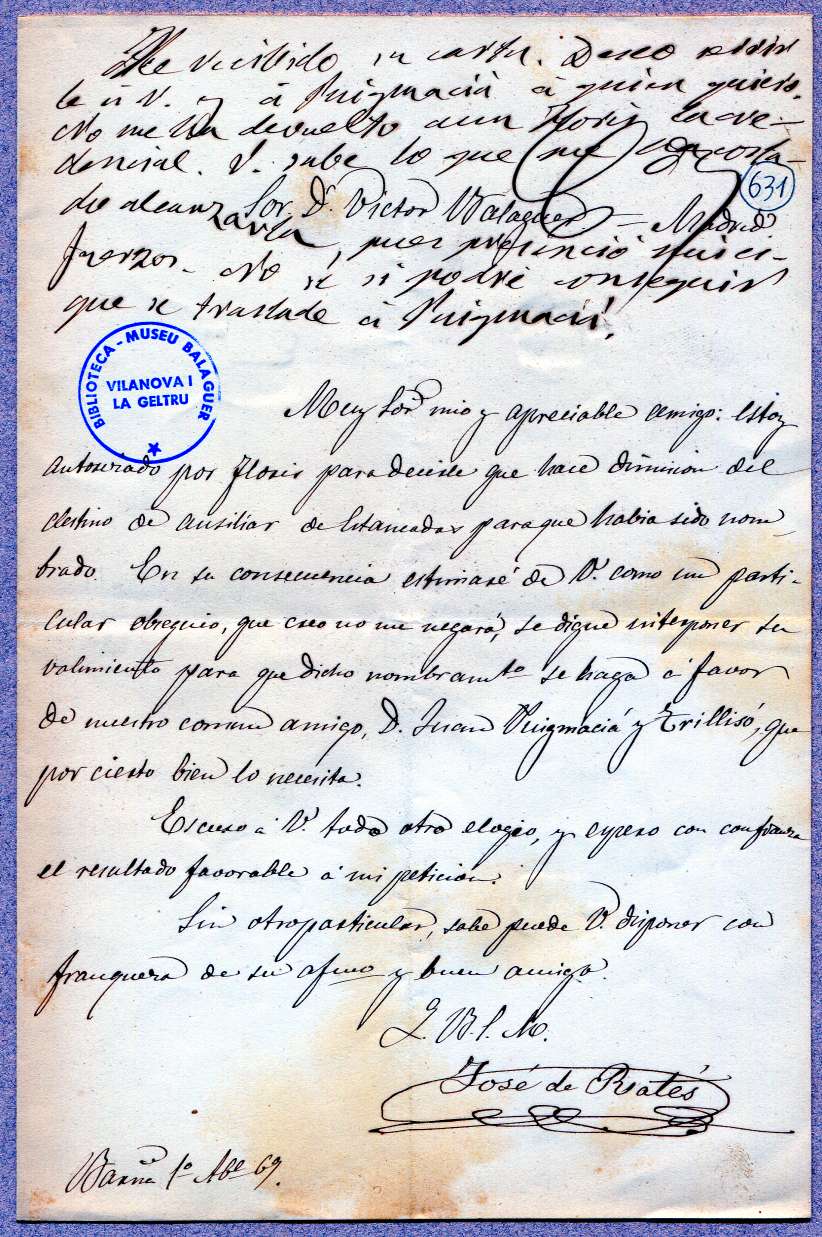 He recibido su carta. Deseo servir
le á V. y á Puigmaciá á quien quiero.
No me ha devuelto aun Floris la cre-
dencial. V. sabe lo que me ha costa-
do alcanzarla, pues presenció mis es-
fuerzos. No se si podré conseguir
que se traslade á Puigmaciá.
631
Sor. Dn. Victor Balaguer = Madrid
BIBLIOTECA - MUSEU BALAGUER
VILANOVA I
LA GELTRU
Muy Sor. mio y apreciable amigo: estoy
autorizado por Floris para decirle que hace dimision del
destino de ausiliar de Estancadas para que habia sido nom-
brado. En su consecuencia estimaré de V. como un parti-
cular obsequio, que creo no me negará, se digne interponer su
valimiento para que dicho nombramto. se haga á favor
de nuestro comun amigo, D. Juan Puigmaciá y Trillisó, que
por cierto bien lo necesita.
Escuso á V. todo otro elogio, y espero con confianza
el resultado favorable á mi peticion.
Sin otro particular, sabe puede V. disponer con
franqueza de su afmo y buen amigo.
Q. B. S. M.
José de Pratés
Barna. 1º Abl 69.